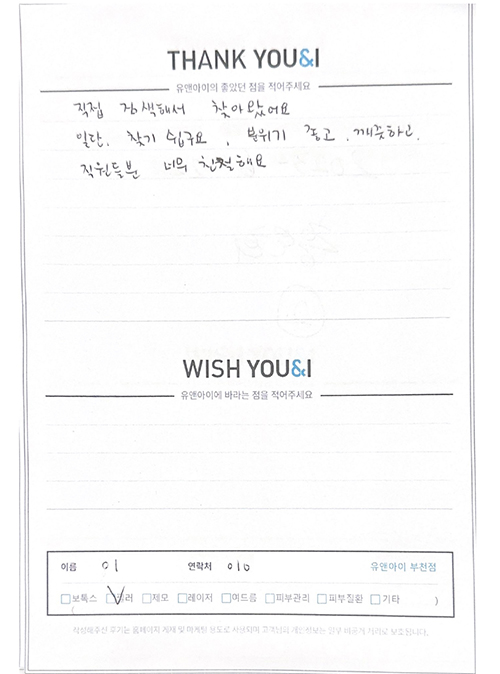 THANK YOU&I
유앤아이의 좋았던 점을 적어주세요
직접 검색해서 찾아왔어요
일단, 찾기 쉽구요, 분위기 좋고, 깨끗하고,
직원들분 너무 친절해요
WISH YOU&I
유앤아이에 바라는 점을 적어주세요
이름 이 연락처 010 유앤아이 부천점
보톡스 필러 제모 레이저 여드름 피부관리 피부질환 기타 )
(
작성해주신 후기는 홈페이지 게재 및 마케팅 용도로 사용되며 고객님의 개인정보는 안전하게 보호됩니다.